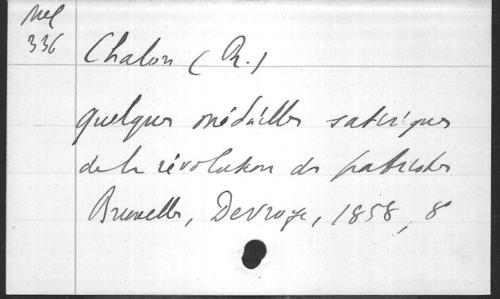 Mel
336
Chalon (R.)
Quelques médailles satiriques
de la révolution des patriotes
Bruxelles, Devroye, 1858, 8°